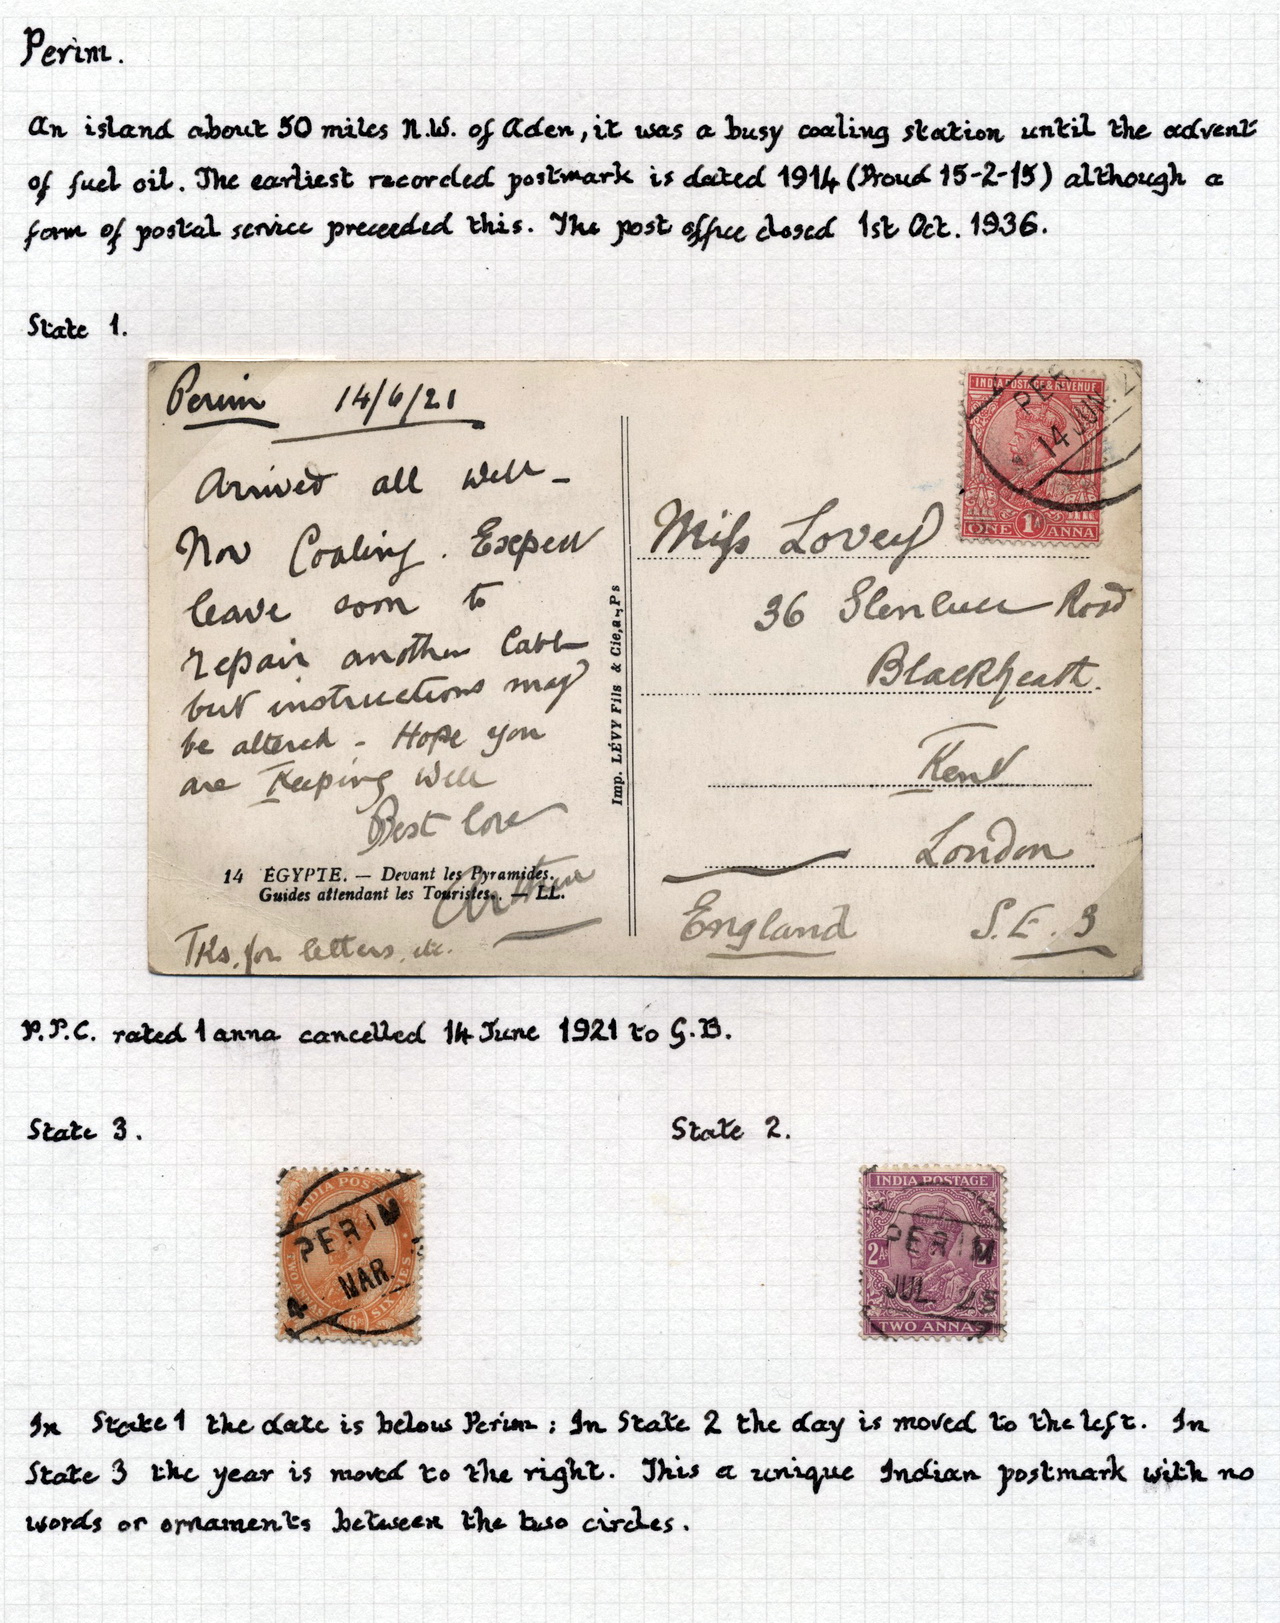 Perim.
An island about 50 miles N.W. of Aden, it was a busy coaling station until the advent
of fuel oil. The earliest recorded postmark is dated 1914 (Proud 15-2-15) although a
form of postal service preceeded this. The post office closed 1st Oct. 1936.
State 1.
Perim 14/6/21
Arrived all well -
Now Coaling. Expect
leave soon to
repair another Cable
but instructions may
be altered - Hope you
are Keeping Well
Best love
Arthur
14 ÉGYPTE. — Devant les Pyramides.
Guides attendant les Touristes. — LL.
Tks. for letters, etc.
Imp. LÉVY Fils & Cie, a-, Ps
INDIA POSTAGE & REVENUE
PER
14 JUN. 2
ONE 1A ANNA
Miss Lovey
36 Glenluce Road
Blackheath.
Kent
London
England S.E. 3
P.P.C. rated 1 anna cancelled 14 June 1921 to G.B.
State 3.
State 2.
INDIA POS
PERIM
4 MAR.
TWO ANNAS SIX PIES
INDIA POSTAGE
PERIM
2As
JUL. 25
TWO ANNAS
In State 1 the date is below Perim : In State 2 the day is moved to the left. In
State 3 the year is moved to the right. This a unique Indian postmark with no
words or ornaments between the two circles.